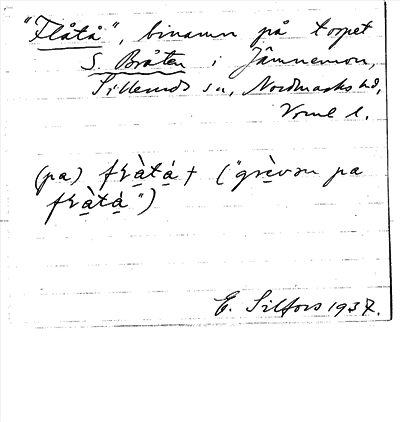 "Flåtå", binamn på torpet
S. Bråten i Jämnemon,
Sillerud sn, Nordmarks hd,
Värml l.
(pa) fràtá + ("grèvən pa
fràtá")
E. Silfors 1937.